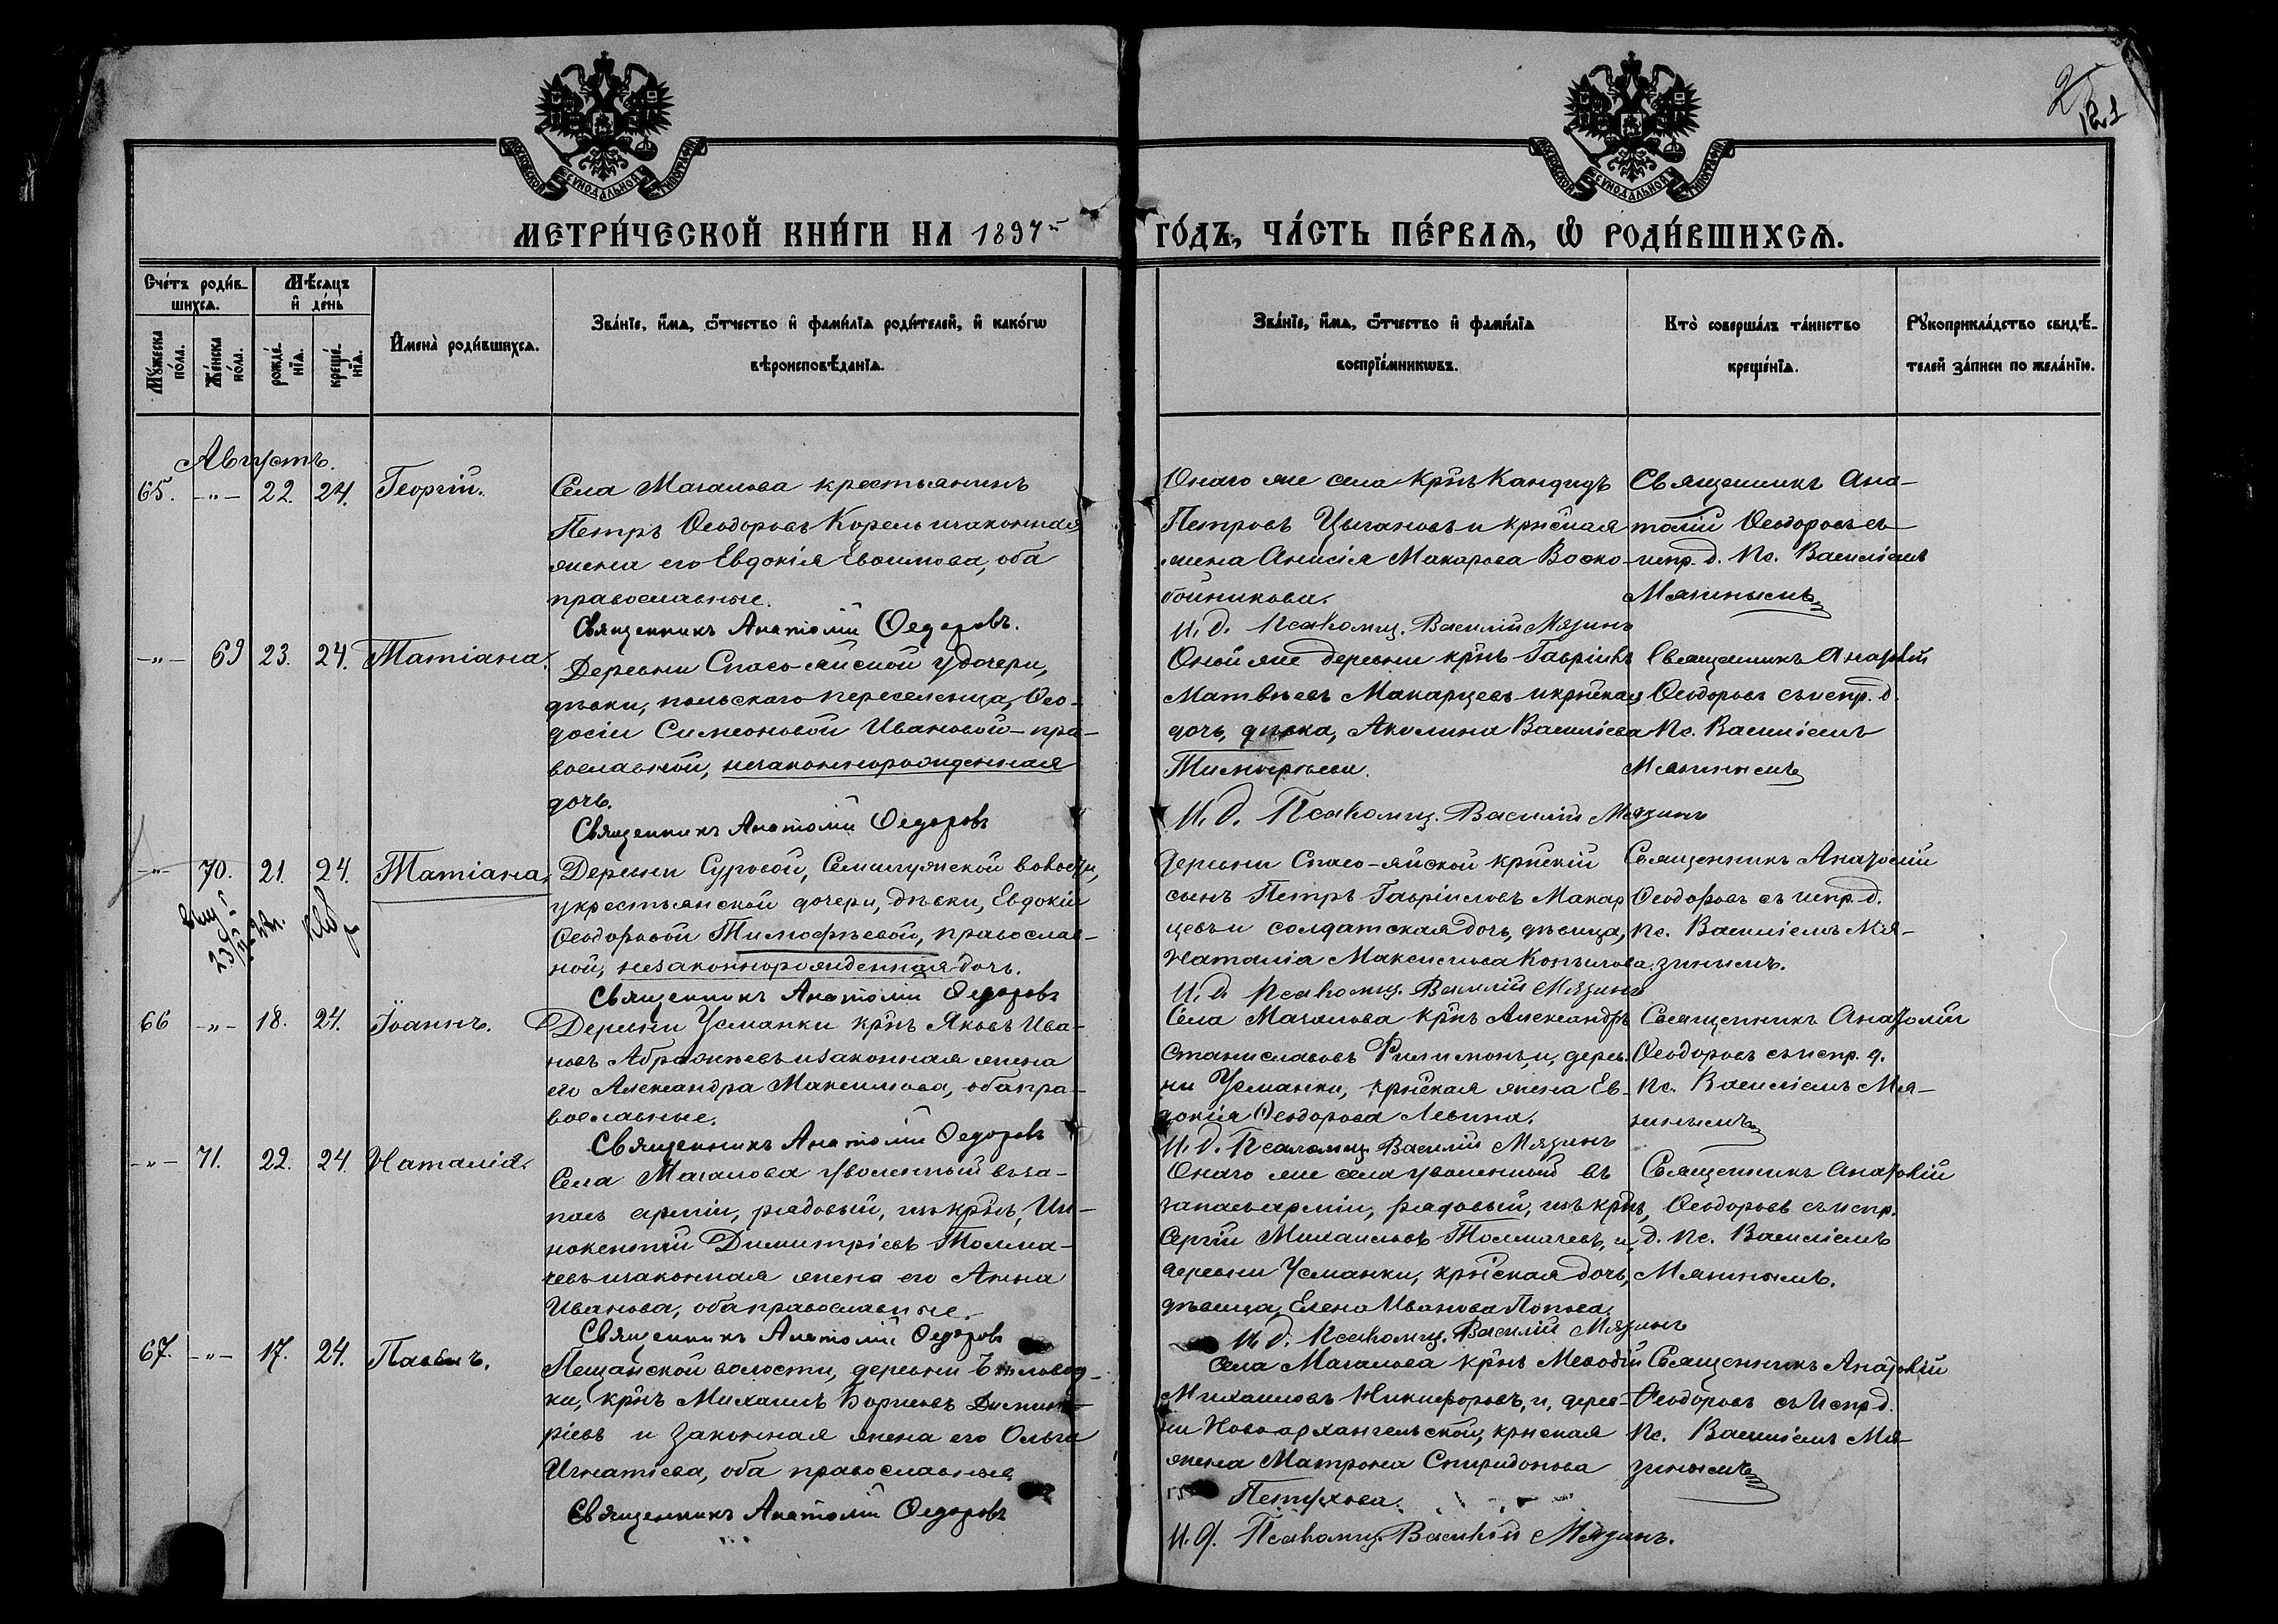 2
121
МОСКОВСКОЙ СѴНОДАЛЬНОЙ ТИПОГРАФІИ
МОСКОВСКОЙ СѴНОДАЛЬНОЙ ТИПОГРАФІИ
МЕТРИ́ЧЕСКОЙ КНИ́ГИ НА 1897
ГО́ДЪ, ЧА́СТЬ ПЕ́РВАѦ, Ѡ РОДИ́ВШИХСѦ.
Сче́тъ роди́в-
шихсѧ.
Мѣ́сѧцъ
и҆ де́нь
Мꙋ́жеска
по́ла.
Же́нска
по́ла.
рожде́-
нїѧ.
креще́-
нїѧ.
И҆мена̀ роди́вшихсѧ.
Зва́нїе, и҆́мѧ, ѻ҆́тчество и҆ фами́лїѧ роди́телей, и҆ како́гѡ
вѣроисповѣ́данїѧ.
Зва́нїе, и҆́мѧ, ѻ҆́тчество и҆ фами́лїѧ
воспрїе́мникѡвъ.
Кто̀ соверша́лъ та́инство
креще́нїѧ.
Рꙋкоприкла́дство свидѣ́-
телей за́писи по жела́нїю.
Августъ.
65. -"- 22. 24. Георгій.
Села Магалова крестьянинъ
Петръ Ѳеодоровъ Корель и законная
жена его Евдокія Евѳимова, оба
православные.
Священникъ Анатолій Ѳедоровъ.
Онаго же села кр̃нъ Кандидъ
Петровъ Цыгановъ и кр̃нская
жена Анисія Макарова Воско-
бойникова.
И. д. Псаломщ. Василій Мязинъ
Священникъ Ана-
толій Ѳеодоровъ съ
испр. д. пс. Василіемъ
Мязинымъ
-"- 69 23. 24. Татіана.
Деревни Спасо-яйской у дочери,
дѣвки, польскаго переселенца, Ѳео-
досіи Симеоновой Ивановой - пра-
вославной, незаконнорожденная
дочь.
Священникъ Анатолій Ѳедоровъ
Оной же деревни кр̃нъ Гавріилъ
Матвѣевъ Макарцевъ и кр̃нская
дочь, дѣвка, Акилина Василіева
Тимофѣева.
И. д. Псаломщ. Василій Мязинъ
Священникъ Анатолій
Ѳеодоровъ съ испр. д.
пс. Василіемъ
Мязинымъ
-"- 70. 21. 24. Татіана,
Деревни Суровой, Семилужской волости,
у крестьянской дочери, дѣвки, Евдокіи
Ѳеодоровой Тимофѣевой, православ-
ной, незаконнорожденная дочь.
Священникъ Анатолій Ѳедоровъ
Деревни Спасо-яйской кр̃нскій
сынъ Петръ Гавріиловъ Макар
цевъ и солдатская дочь, дѣвица,
Наталія Максимова Копылова.
И. д. Псаломщ. Василій Мязинъ
Священникъ Анатолій
Ѳеодоровъ съ испр. д.
пс. Василіемъ Мя-
зинымъ.
66 -"- 18. 24. Іоаннъ.
Деревни Усманки кр̃нъ Яковъ Ива-
новъ и законная жена
его Александра Максимова, оба пра-
вославные.
Священникъ Анатолій Ѳедоровъ
Села Магалова кр̃нъ Александръ
Станиславовъ и, дерев-
ни Усманки, кр̃нская жена Ев-
докія Ѳеодорова Левина.
И. д. Псаломщ. Василій Мязинъ
Священникъ Анатолій
Ѳеодоровъ съ испр. д.
пс. Василіемъ Мя-
зинымъ
-"- 71. 22. 24. Наталія.
Села Магалова уволенный въ за-
пасъ арміи, рядовый, изъ кр̃нъ, Ин-
нокентій Димитріевъ Толма-
чевъ и законная жена его Анна
Иванова, оба православные.
Священникъ Анатолій Ѳедоровъ
Онаго же села уволенный въ
запасъ арміи, рядовый, изъ кр̃нъ,
Сергій Михаиловъ Толмачевъ, и,
деревни Усманки, кр̃нская дочь,
дѣвица, Елена Иванова Попова.
И. д. Псаломщ. Василій Мязинъ
Священникъ Анатолій
Ѳеодоровъ съ испр.
д. пс. Василіемъ
Мязинымъ.
67. -"- 17. 24. Павелъ.
волости, деревни Бѣловод-
ки, кр̃нъ Михаилъ Борисовъ Димит-
ріевъ и законная жена его Ольга
Игнатіева, оба православные
Священникъ Анатолій Ѳедоровъ
Села Магалова кр̃нъ Меѳодій
Михаиловъ Никифоровъ, и, дерев-
ни Ново-архангельской, кр̃нская
жена Матрона Спиридонова
Петухова.
И. д. Псаломщ. Василій Мязинъ.
Священникъ Анатолій
Ѳеодоровъ съ испр. д.
пс. Василіемъ Мя-
зинымъ